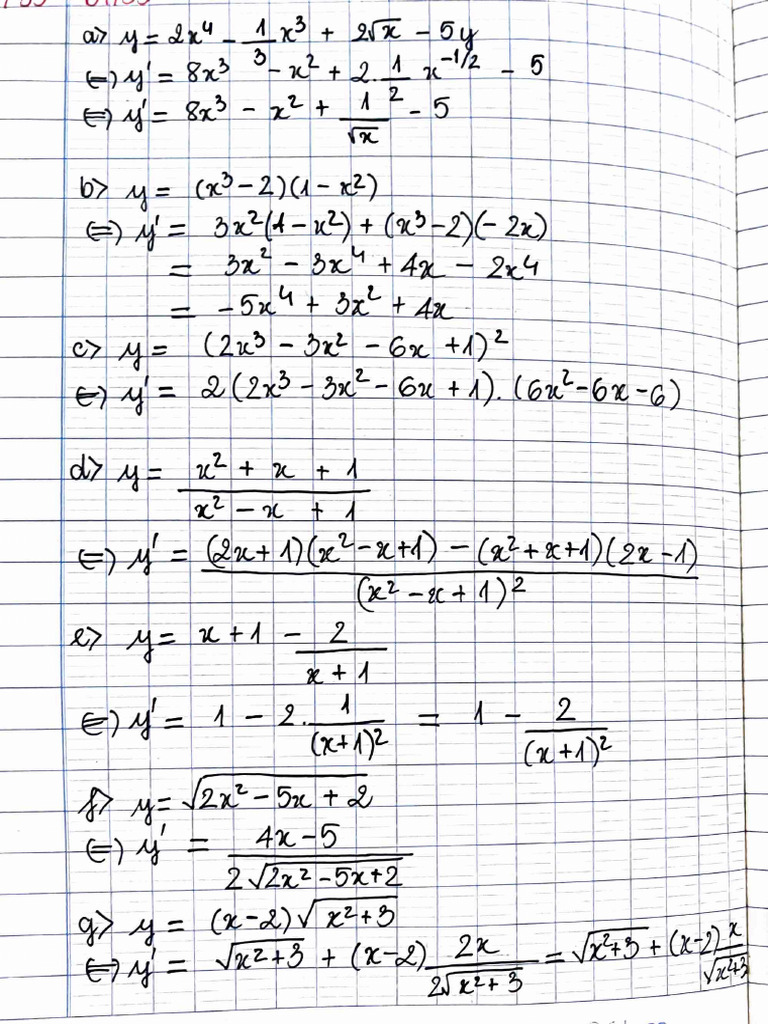 a> y = 2x⁴ - 1/3 x³ + 2√x - 5y
⇔) y' = 8x³ - x² + 2 . 1/2 x^(-1/2) - 5
⇔) y' = 8x³ - x² + 1/√x - 5
b> y = (x³ - 2)(1 - x²)
⇔) y' = 3x²(1 - x²) + (x³ - 2)(- 2x)
= 3x² - 3x⁴ + 4x - 2x⁴
= -5x⁴ + 3x² + 4x
c> y = (2x³ - 3x² - 6x + 1)²
⇔) y' = 2(2x³ - 3x² - 6x + 1) . (6x² - 6x - 6)
d> y = (x² + x + 1)/(x² - x + 1)
⇔) y' = ((2x + 1)(x² - x + 1) - (x² + x + 1)(2x - 1))/(x² - x + 1)²
e> y = x + 1 - 2/(x + 1)
⇔) y' = 1 - 2 . 1/(x+1)² = 1 - 2/(x+1)²
f> y = √(2x² - 5x + 2)
⇔) y' = (4x - 5)/(2√(2x² - 5x + 2))
g> y = (x - 2)√(x² + 3)
⇔) y' = √(x² + 3) + (x - 2) 2x/(2√(x² + 3)) = √(x² + 3) + (x - 2) x/√(x² + 3)